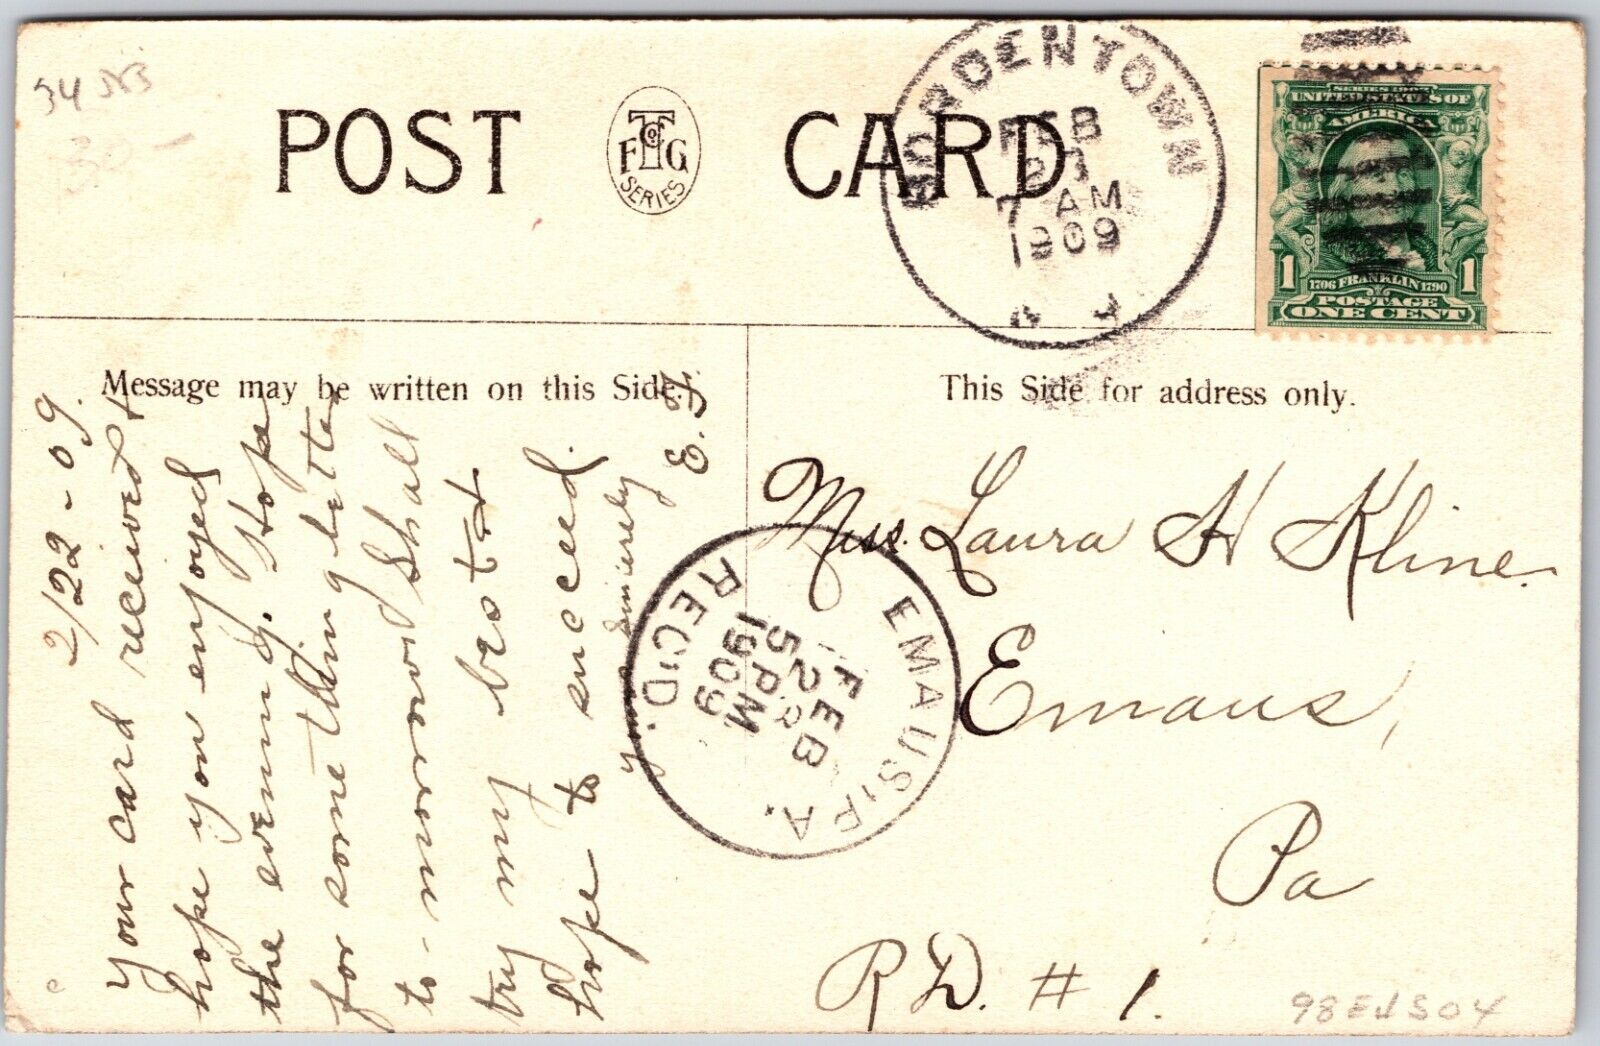 34
POST CARD
T Co
F G
SERIES
BORDENTOWN
FEB
7 AM
1909
SERIES 1902
UNITED STATES OF
AMERICA
1 1706 FRANKLIN 1790 1
POSTAGE
ONE CENT
Message may be written on this Side.
This Side for address only.
2/22-09.
your card received &
hope you enjoyed
the evening. Hope
for some thing better
to-morrow Shall
try my best &
hope to succeed.
yours Sincerely
Miss. Laura H Kline.
Emaus,
Pa
R D. # 1.
EMAUS, PA.
FEB
5 PM
1909
REC'D.
c